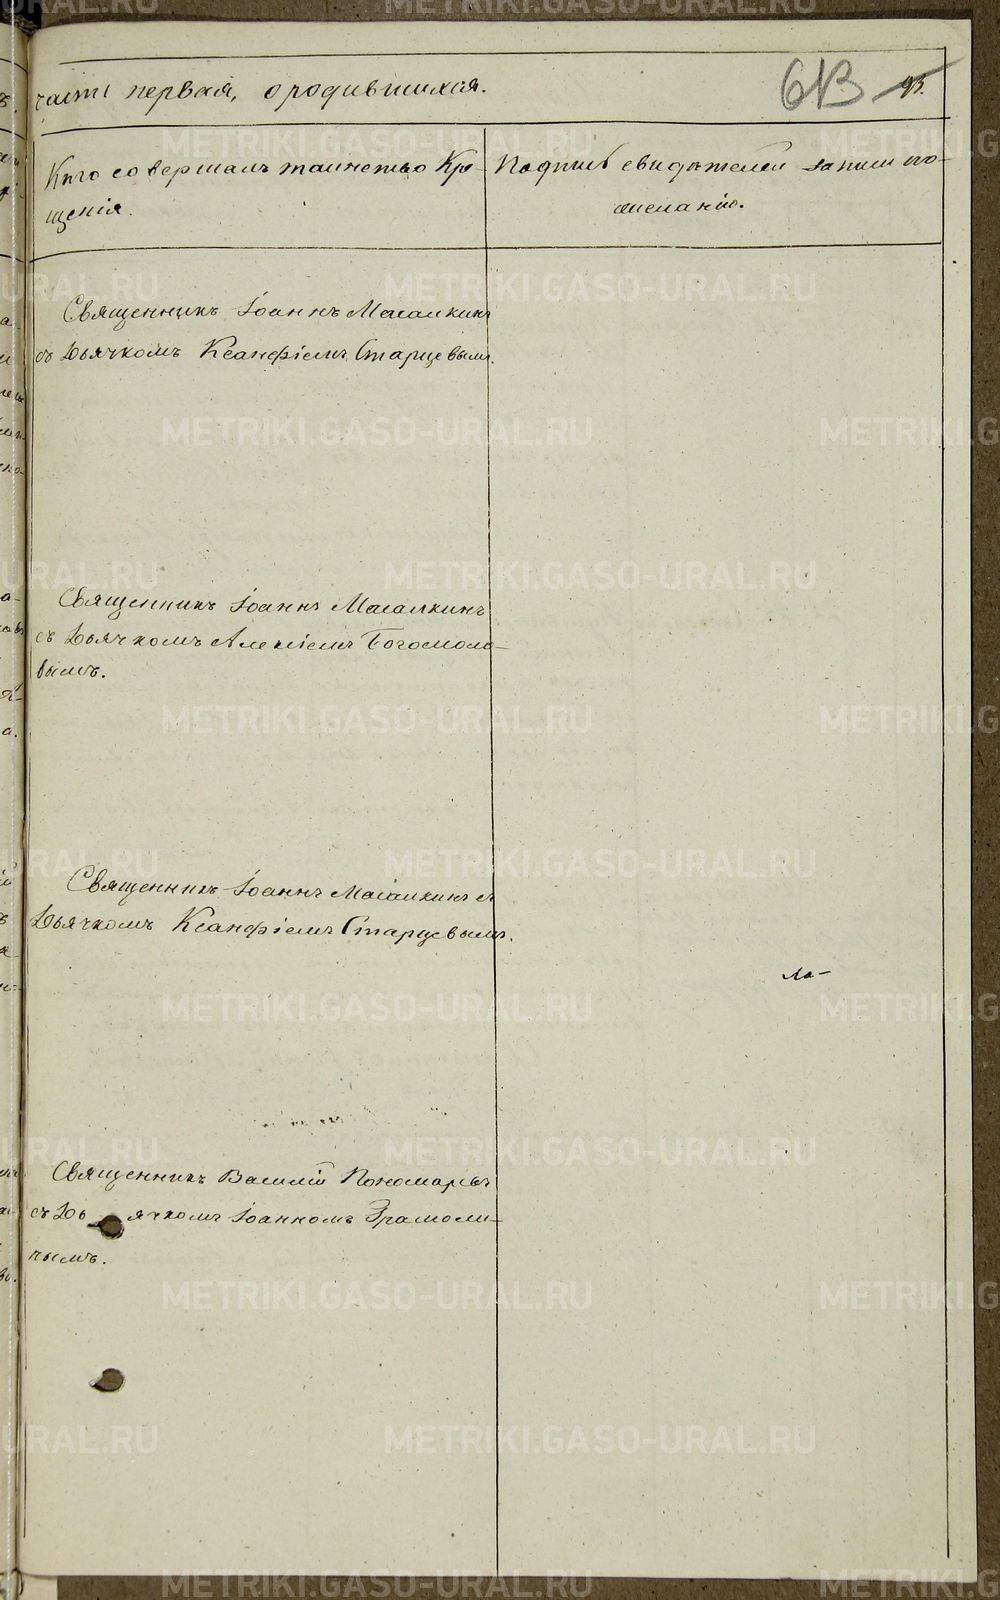 часть первая, о родившихся.
613
Кто совершалъ таинство Кре-
щенія.
Подпись свидѣтелей записи по
желанію.
Священникъ Іоаннъ Масалкинъ
съ Дьячкомъ Ксанфіемъ Старцевымъ.
Священникъ Іоаннъ Масалкинъ
съ Дьячкомъ Алексіемъ Богомоло-
вымъ.
Священникъ Іоаннъ Масалкинъ съ
Дьячкомъ Ксанфіемъ Старцевымъ.
Священникъ Василій Пономаревъ
съ Дьячкомъ Іоанномъ
METRIKI.GASO-URAL.RU